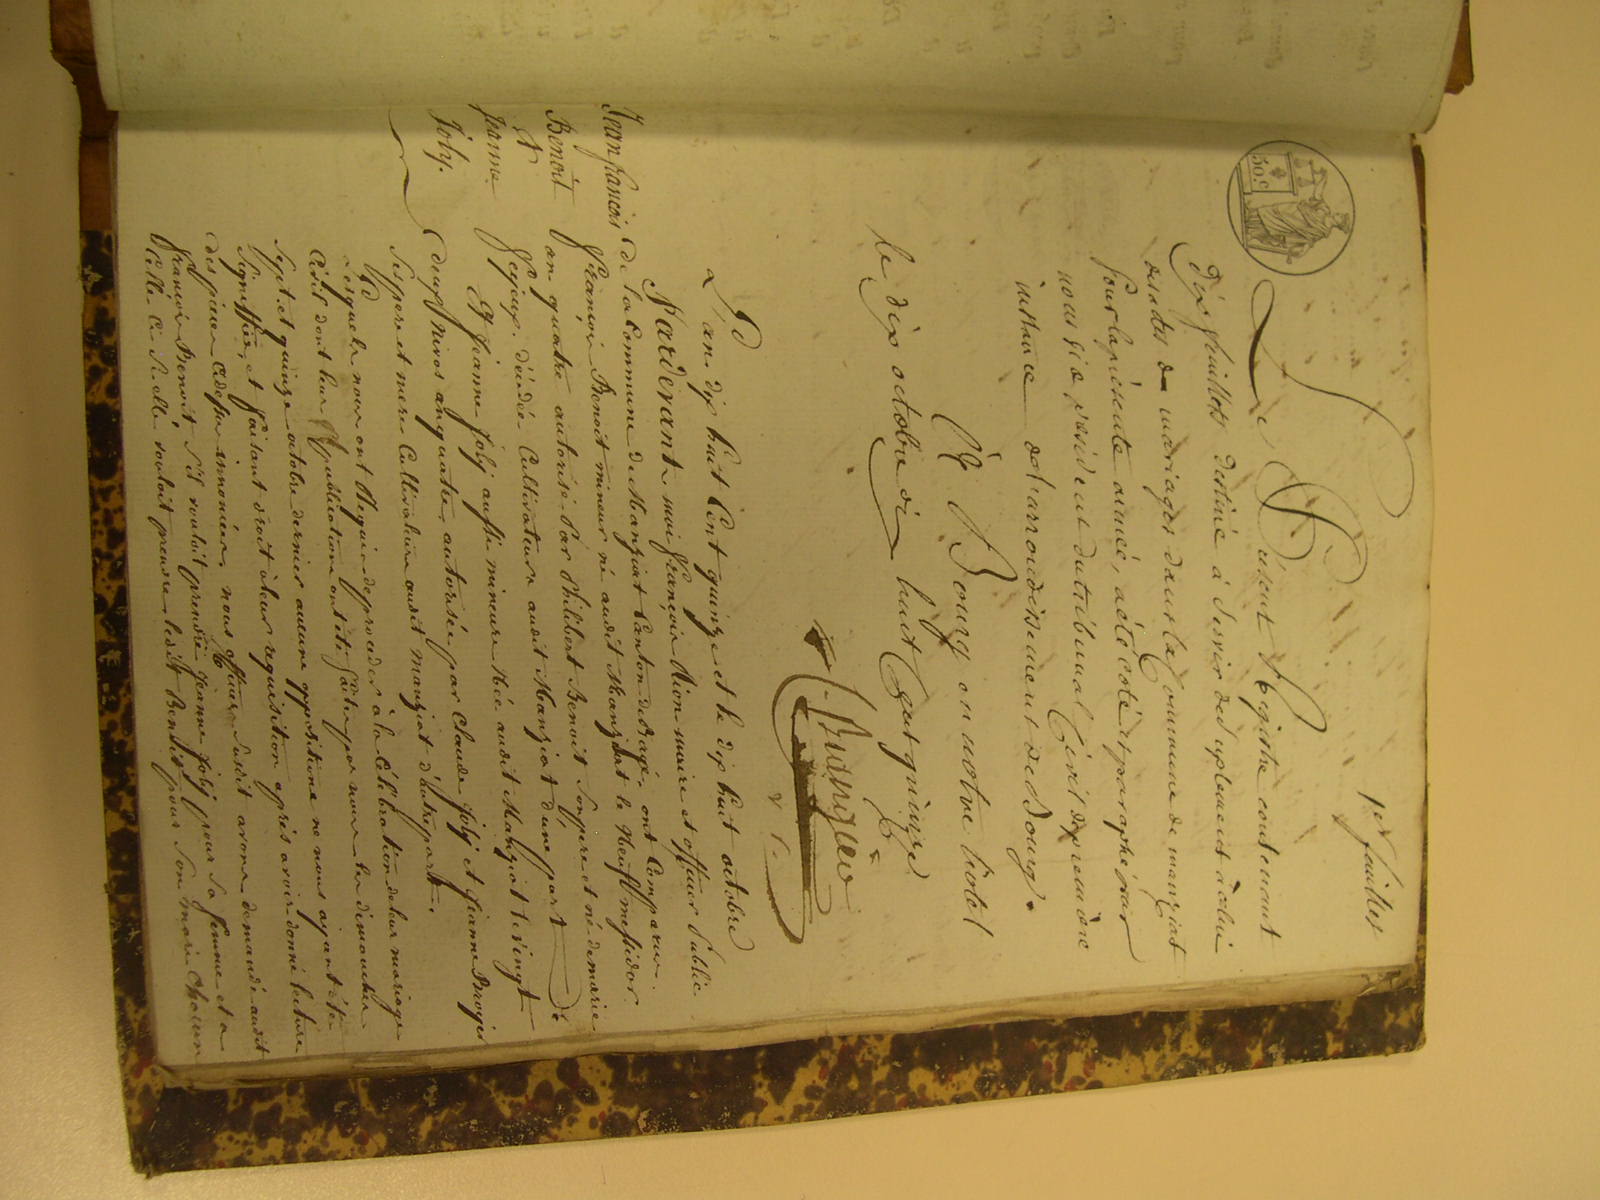 1er feuillet
50.c
Le Présent Registre contenant
Dix feuillets destiné à servir de suplement à celui
des actes de mariages dans la Commune de manziat
pour la présente année, a été coté et paraphé par
nous gié président du tribunal Civil de première
instance de l'arrondissement de Bourg.
à Bourg en notre hotel
le dix octobre dix huit Cent quinze
L'an dix huit Cent quinze et le dix huit octobre
Pardevant moi françois Dion maire et officier Public
de la Commune de Manziat Canton de Bagé ont Comparu.
Jean francois
Benoit
et
Jeanne
Joly.
françois Benoit mineur né audit Manziat le Neuf messidor
an quatre autorisé Par Philibert Benoit Son pere et né de marie
décédée Cultivateur audit Manziat d'une part
Et Jeanne Joly aussi mineure Née audit Manziat le vingt
deux Nivos an quatre autorisée par Claude Joly et Jeanne
Ses pere et mere Cultivateurs audit manziat d'autre part.
Lesquels nous ont Requis de proceder à la Célébration de leur mariage
Civil dont leur publication ont été faites par nous les dimanches
Sept et quinze octobre dernier aucune opposition ne nous ayant été
Signiffiée, et faisant droit à leur requisition après avoir donné lecture
des pieces Cidessus énoncées nous officier susdit avons demandé audit
françois Benoit s'il vouloit prendre Jeanne Joly pour Sa femme et a
Celle Ci Si elle vouloit prendre ledit Benoit pour Son mari Chacun